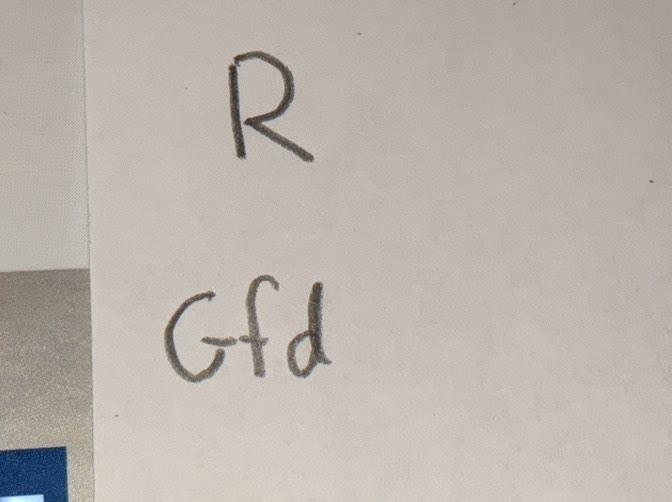 R
Gfd